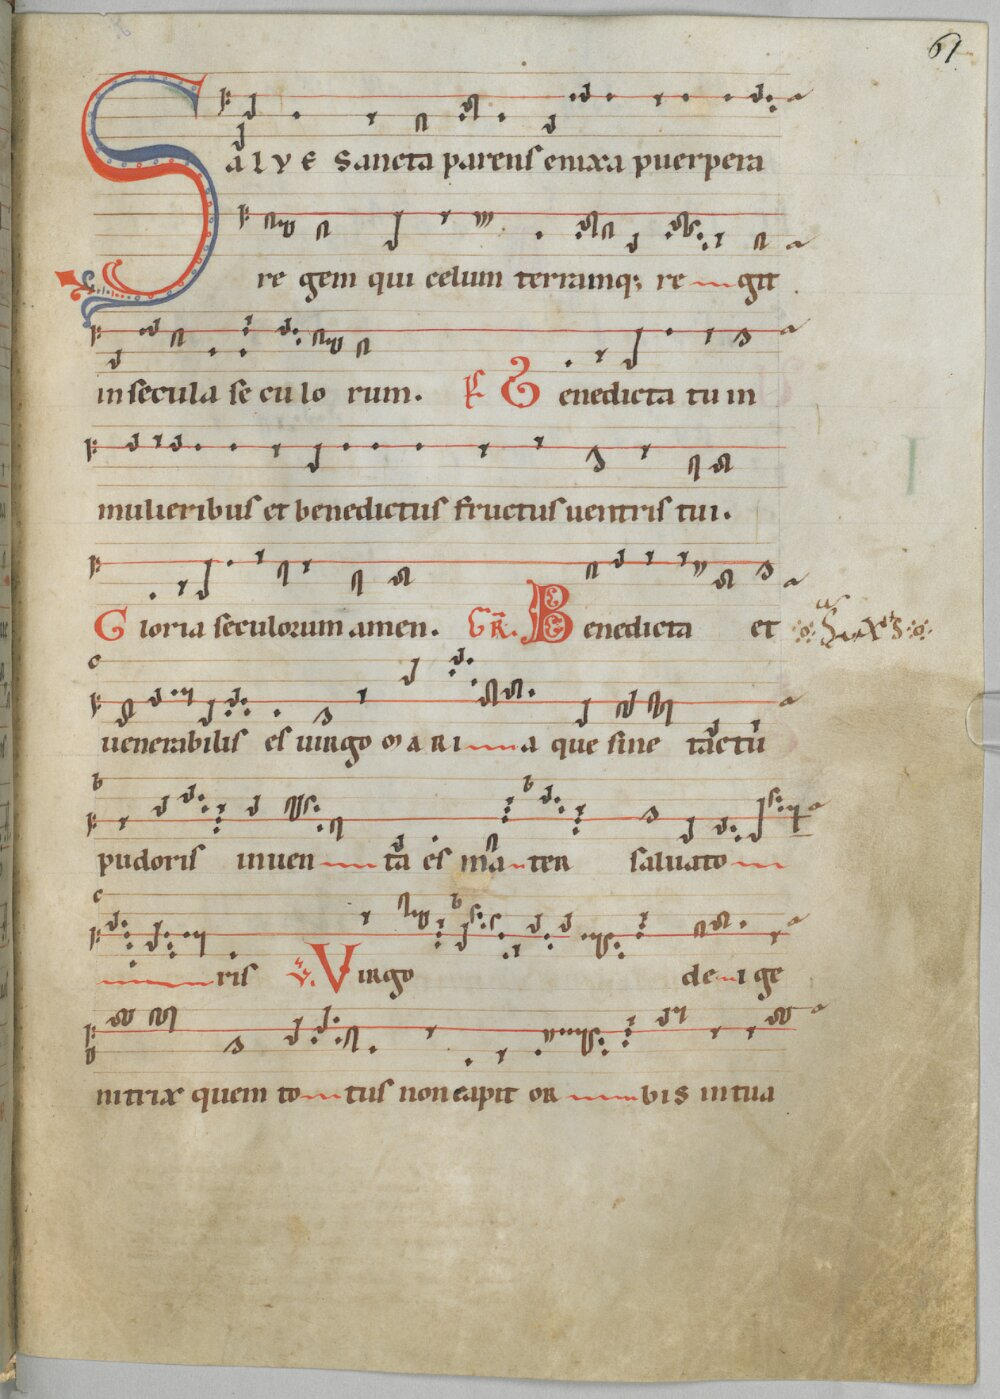 61
Salve sancta parens enixa puerpera
re gem qui celum terramq; re git
in secula se cu lo rum. Benedicta tu in
mulieribus et benedictus fructus ventris tui.
Gloria seculorum amen. GR. Benedicta et
venerabilis es virgo MARI a que sine tactu
pudoris inven ta es ma ter salvato
ris V. Virgo de i ge
nitrix quem to tus non capit or bis in tua